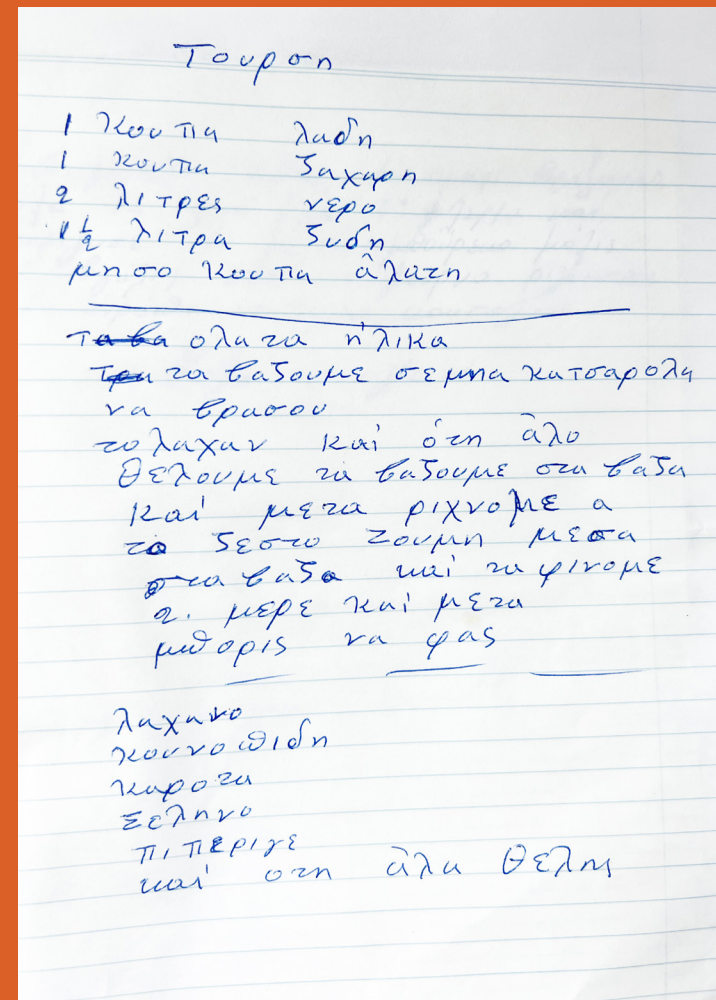 Τουρση
1 κουπα λαδη
1 κουπα ζαχαρη
2 λιτρες νερο
1 1/2 λιτρα ξυδη
μησο κουπα άλατη
ολα τα ήλικα
τα βαζουμε σε μπα κατσαρολα
να βρασου
το λαχαν καί ότη άλο
θέλουμε τα βαζουμε στα βαζα
καί μετα ριχνομε α
το ζεστο ζουμη μεσα
στα βαζα καί τα φινομε
2. μερε καί μετα
μπορις να φας
λαχανο
κουνοπιδη
καροτα
σεληνο
πιπεριγε
καί οτη άλα θελης